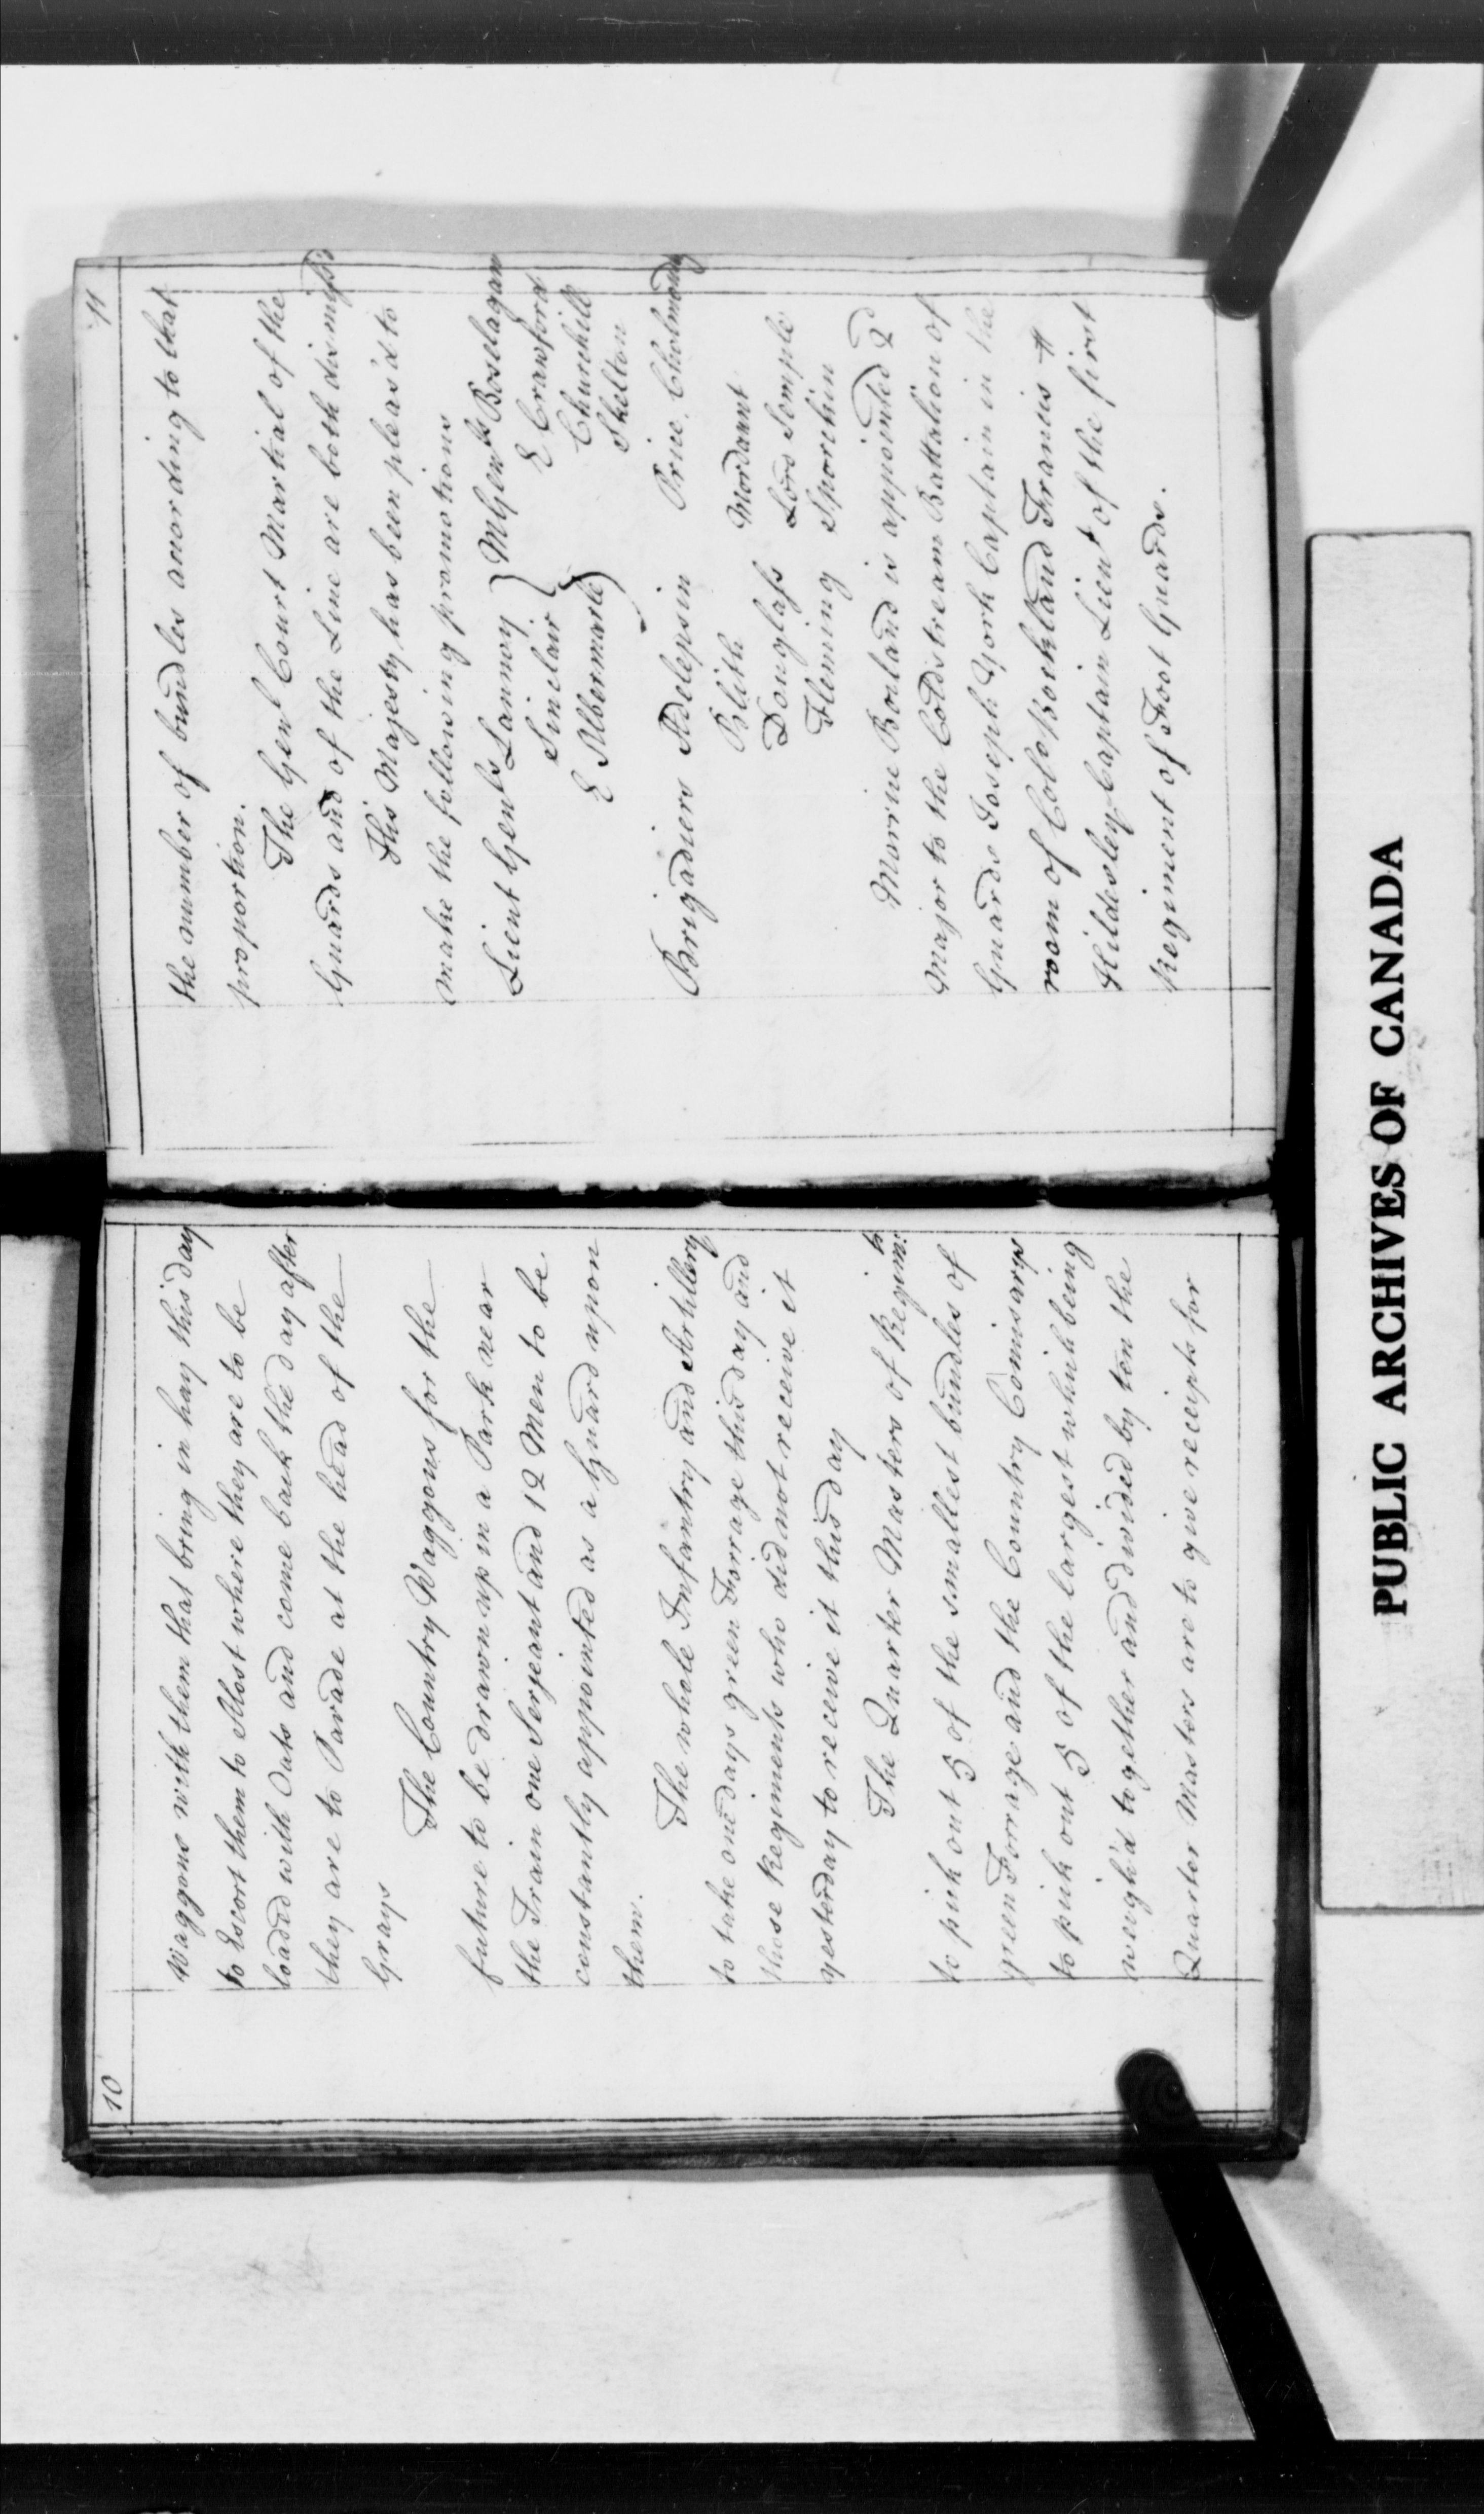 10
Waggons with them that bring in hay this day
to Escort them to Alost where they are to be
loaded with Oats and come back the day after
they are to Parade at the head of the
Grays
The Country Waggons for the
future to be drawn up in a Park near
the Train one Serjeant and 12 Men to be
constantly appointed as a Guard upon
them.
The whole Infantry and Artillery
to take one days green Forrage this day and
those Regiments who did not receive it
yesterday to receive it this day
The Quarter Masters of Regimts
to pick out 5 of the smallest bundles of
green Forrage and the Country Comisarys
to pick out 5 of the largest which being
weigh'd together and divided by ten the
Quarter Masters are to give receipts for
11
the number of bundles according to that
proportion.
The Genl Court Martial of the
Guards and of the Line are both dismiss'd
His Majesty has been pleas'd to
make the following promotions
Lieut Genls Lannoy } M Genls Boselagan
Sinclair E Crawford
E Albermarle Churchill
Skelton
Brigadiers Adelepsin Price Cholmondly
Blith Mordaunt
Douglass Lord Semple
Fleming Sporchin
Morrice Boland is appointed 2d
Major to the Coldstream Battalion of
Guards Joseph York Captain in the
room of Colo Bockland Francis #
Hildesley Captain Lieut of the first
Regiment of Foot Guards.
PUBLIC ARCHIVES OF CANADA